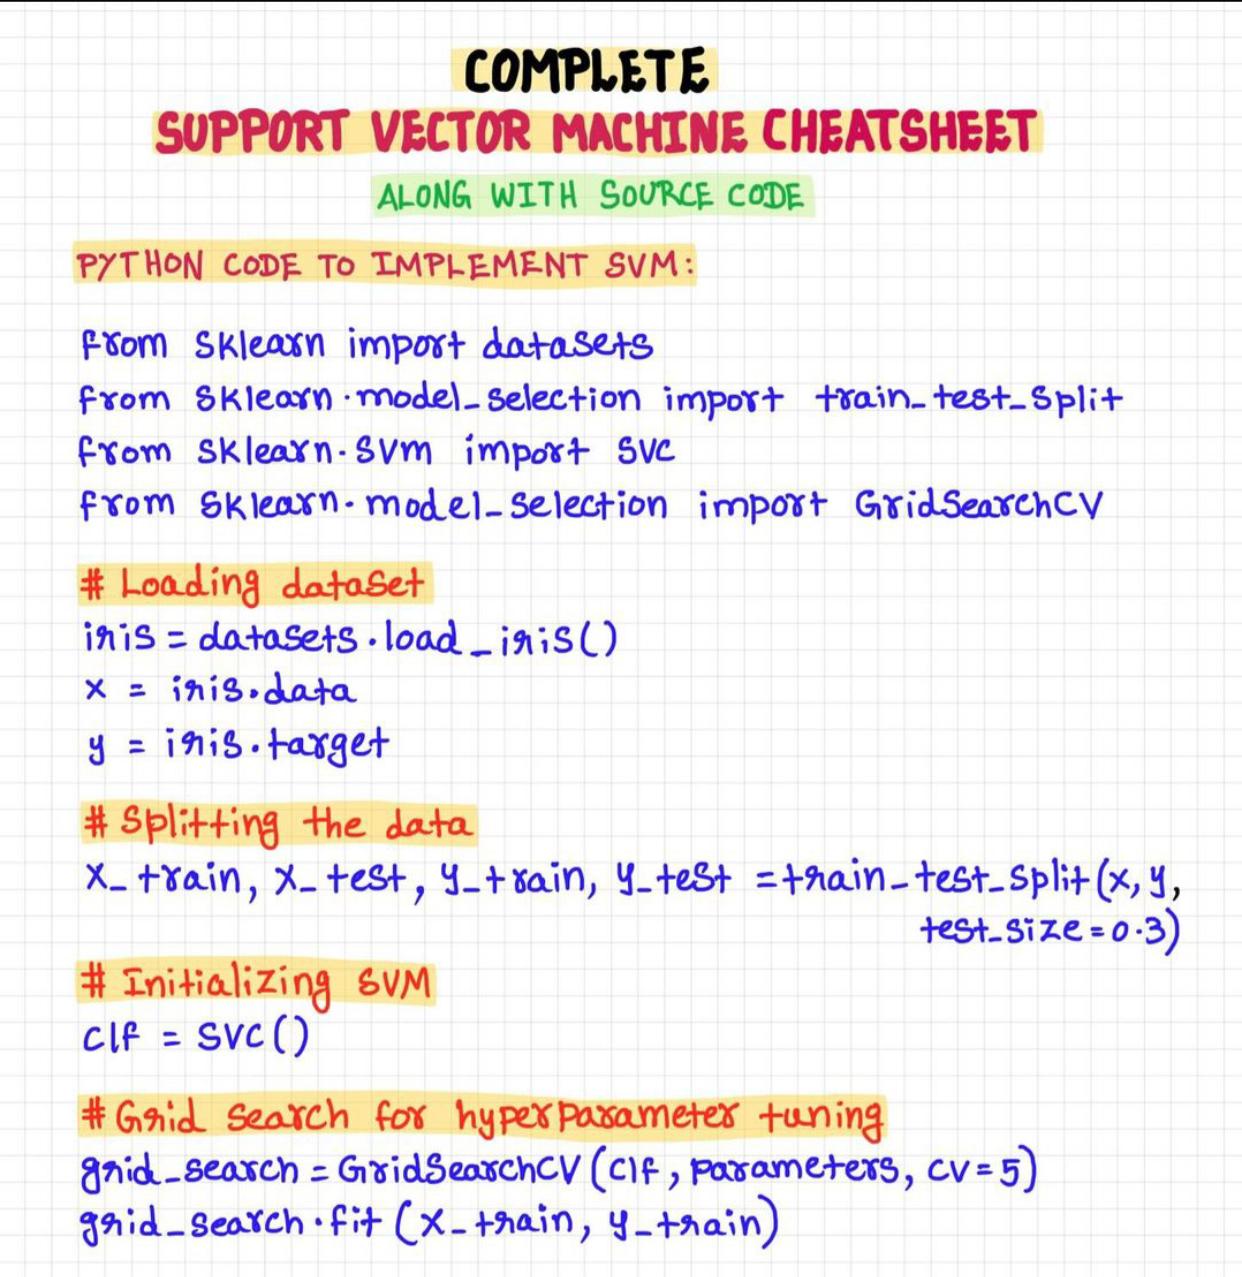 COMPLETE
SUPPORT VECTOR MACHINE CHEATSHEET
ALONG WITH SOURCE CODE
PYTHON CODE TO IMPLEMENT SVM:
from sklearn import datasets
from sklearn.model_selection import train_test_split
from sklearn.svm import SVC
from sklearn.model_selection import GridSearchCV
# Loading dataset
iris = datasets.load_iris()
x = iris.data
y = iris.target
# Splitting the data
x_train, x_test, y_train, y_test = train_test_split(x, y,
test_size = 0.3)
# Initializing SVM
clf = SVC()
# Grid search for hyperparameter tuning
grid_search = GridSearchCV(clf, parameters, cv = 5)
grid_search.fit(x_train, y_train)